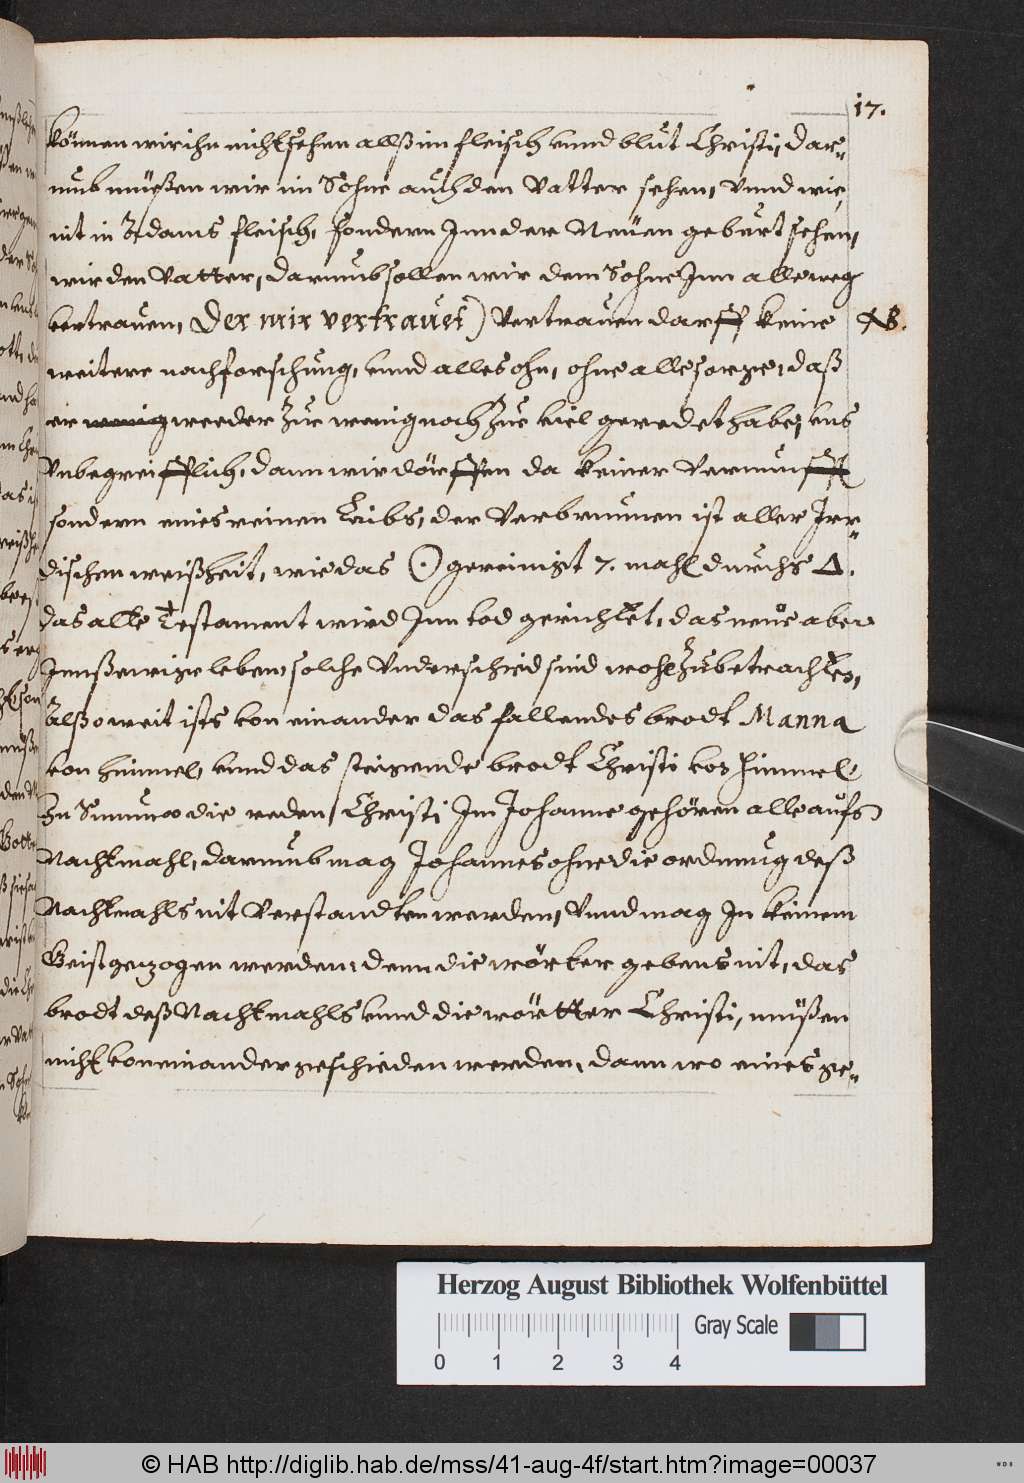 17.
können wir ihn nicht sehen allß im fleisch unnd blut Christi, dar„
umb müeßen wir im Sohne auch den Vatter sehen, Unnd wie,
nit in Adams fleisch, sondern Inn der Neüen geburt sehen,
wir den Vatter, darumb sollen wir dem Sohne Inn alleweg
vertrauen, Der mir vertrauet) Vertrauen darff keine
NB.
weitere nachforschung, unnd alles ohn, ohne alle sorge, daß
er wenig weeder Zur wenig noch Zur viel geredet habe, uns
Unbegreifflich, dann wir dörffen da keiner Vernunfft
sondern eines reinen Leibs, der Verbrunnen ist aller Irr„
dischen weißheit, wie das ☉ gereinigt 7. mahl durchs Δ.
das alte Testament wird Inn tod gerichtet, das neue aber
Innß ewige leben, solche Underschied sind wohl Zu betrachten,
Alßo weit ists von einander das fallendes brodt Manna
von himmel, unnd das steigende brodt Christi vor himmel.
In Summa die reden Christi Im Johanne gehören alle aufs
Nachtmahl, darumb mag Johannes ohne die ordnung deß
Nachtmahls nit Verstandten werden, Unnd mag In keinem
Geist gezogen werden, denn die wörter gebens nit, das
brodt deß Nachtmahls unnd die wörtter Christi, müßen
nicht von einander geschieden werden, dann wo eines ge„
Herzog August Bibliothek Wolfenbüttel
Gray Scale
0 1 2 3 4
© HAB http://diglib.hab.de/mss/41-aug-4f/start.htm?image=00037